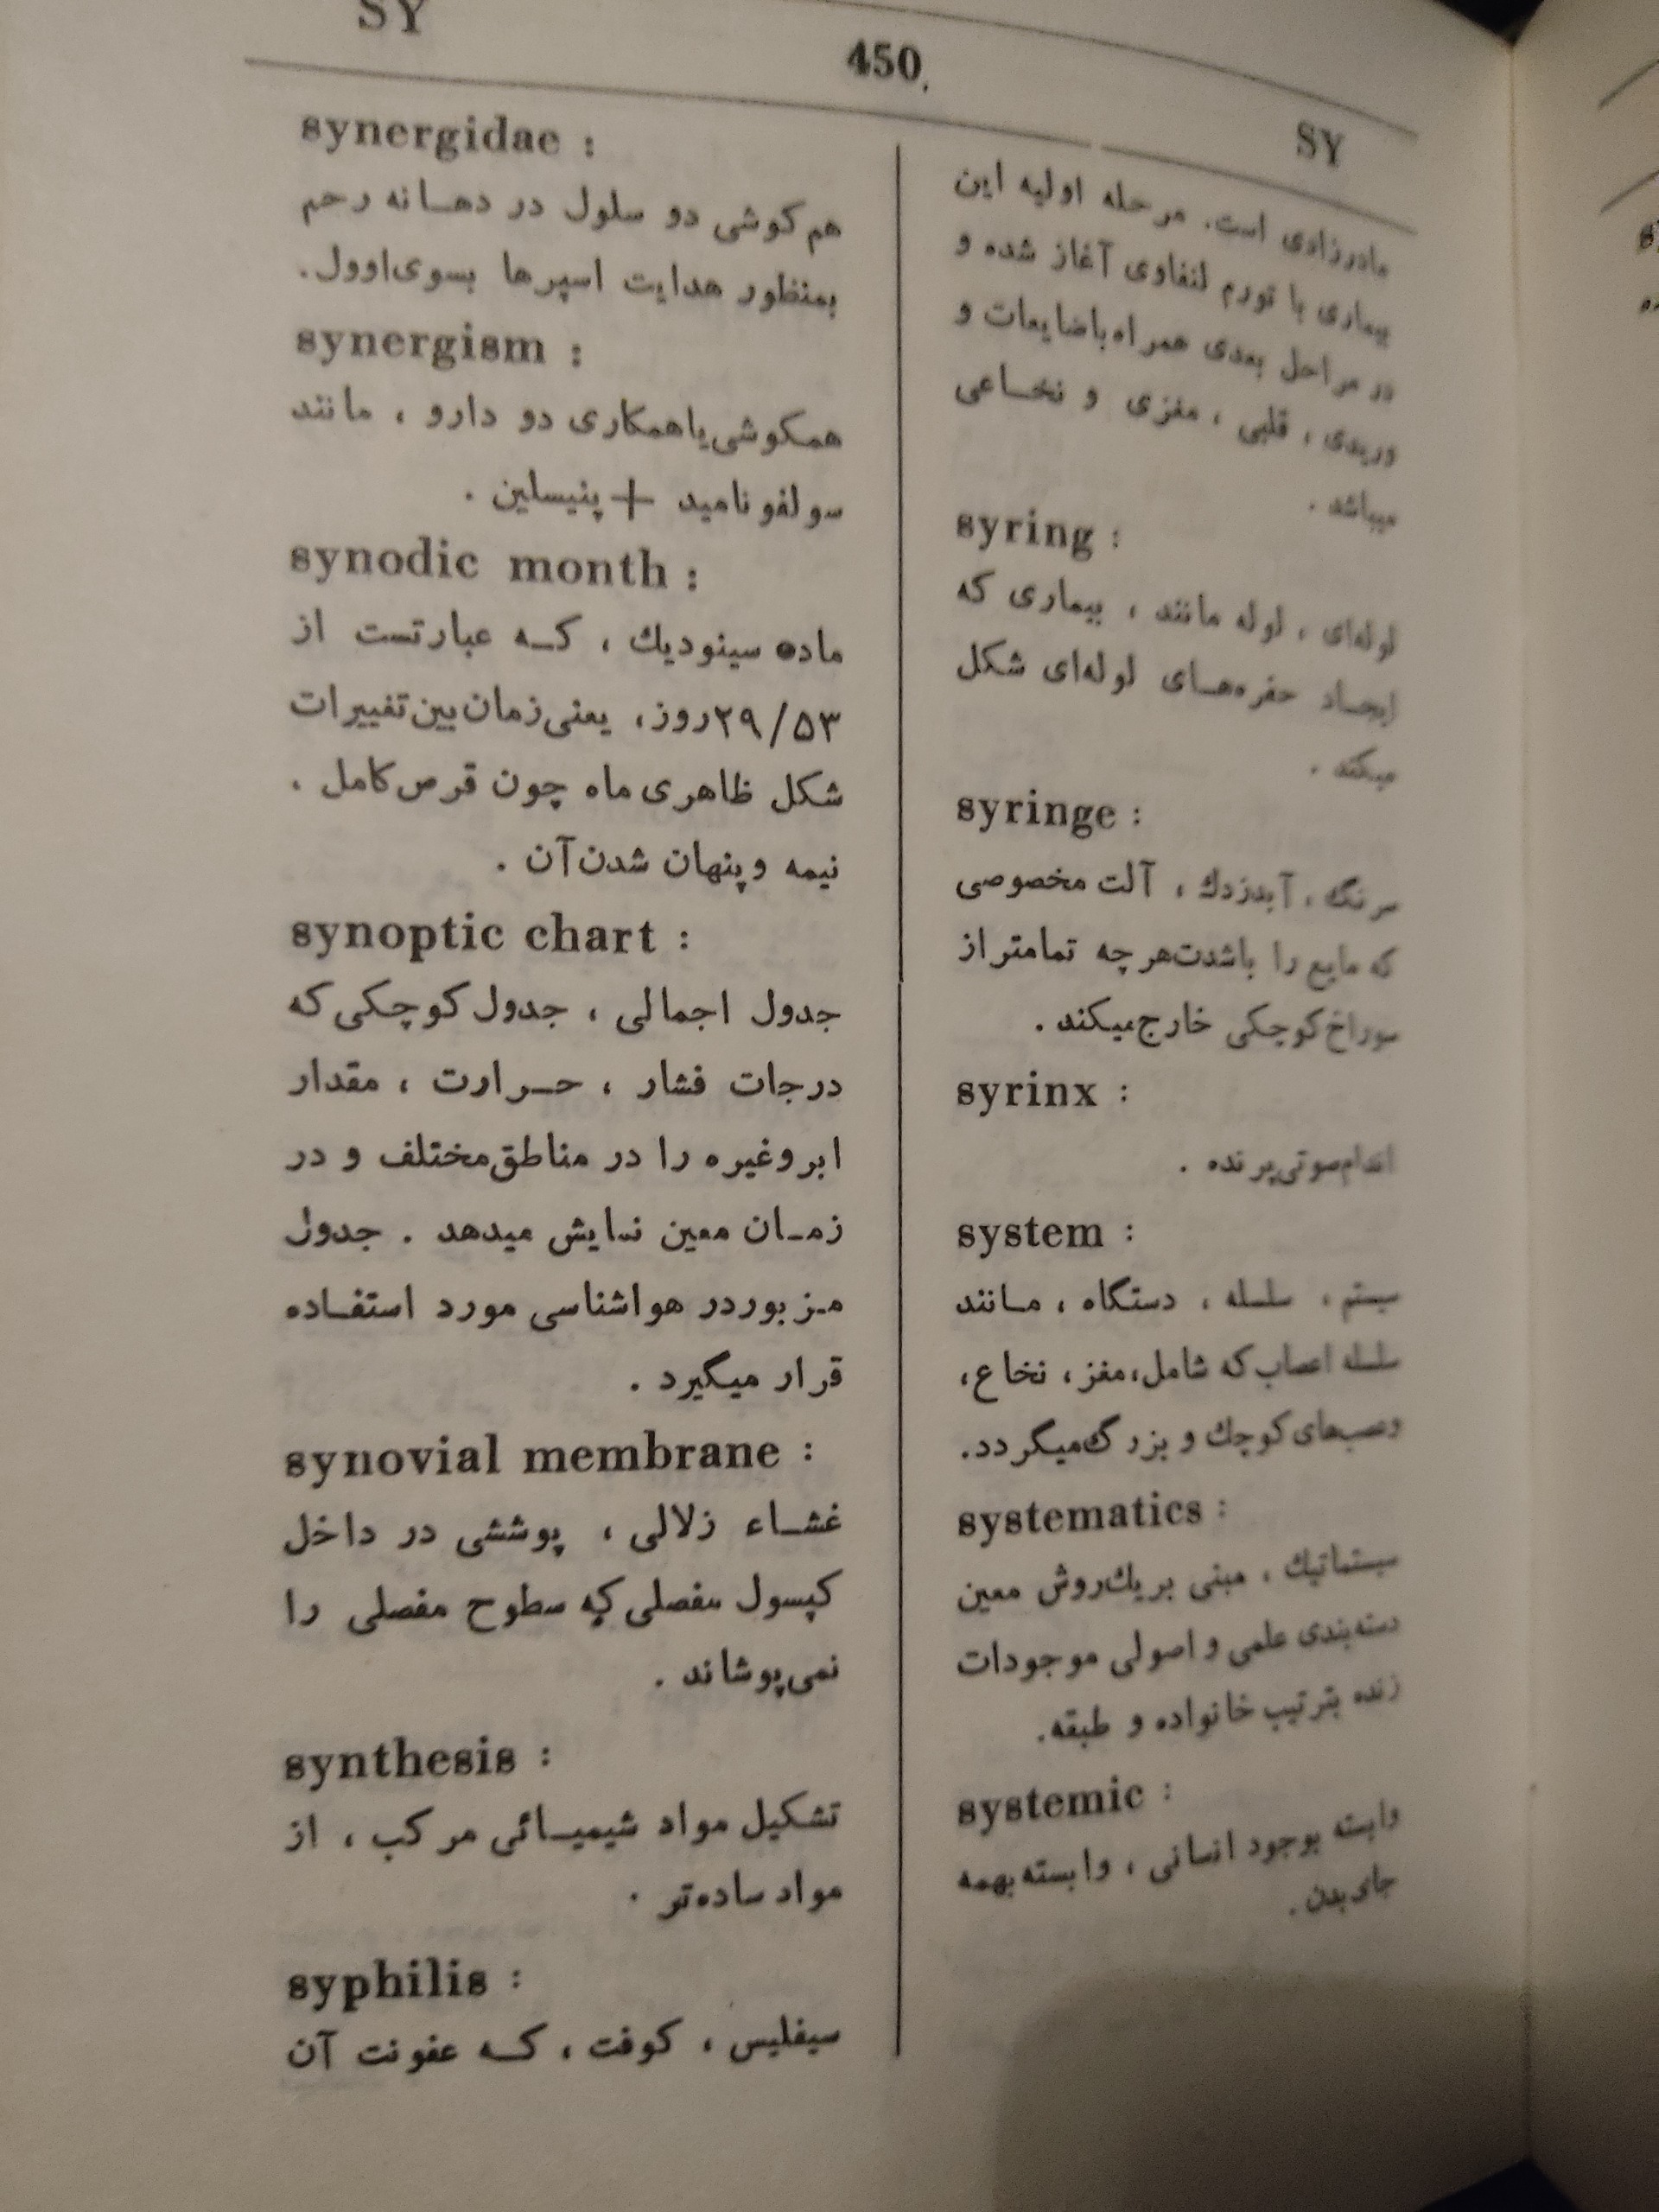 SY
450
SY
synergidae :
هم کوشی دو سلول در دهـانه رحم
بمنظور هدایت اسپرها بسوی اوول.
synergism :
همکوشی یا همکاری دو دارو ، مانند
سولفونامید + پنیسلین .
synodic month :
ماده سینودیك ، کـه عبارتست از
۲۹/۵۳ روز، یعنی زمان بین تغییرات
شکل ظاهری ماه چون قرص کامل .
نیمه و پنهان شدن آن .
synoptic chart :
جدول اجمالی ، جدول کوچکی که
درجات فشار ، حـرارت ، مقدار
ابر وغیره را در مناطق مختلف و در
زمـان معین نمایش میدهد . جدول
مـزبور در هواشناسی مورد استفـاده
قرار میگیرد .
synovial membrane :
غشـاء زلالی ، پوششی در داخل
کپسول مفصلی که سطوح مفصلی را
نمی پوشاند .
synthesis :
تشکیل مواد شیمیـائی مرکب ، از
مواد ساده‌تر .
syphilis :
سیفلیس ، کوفت ، کـه عفونت آن
مادرزادی است. مرحله اولیه این
بیماری با تورم لنفاوی آغاز شده و
در مراحل بعدی همراه با ضایعات و
وریدی ، قلبی ، مغزی و نخـاعی
میباشد .
syring :
لوله‌ای ، لوله مانند ، بیماری که
ایجـاد حفره‌هـای لوله‌ای شکل
میکند .
syringe :
سرنگ ، آبدزدك ، آلت مخصوصی
که مایع را باشدت هرچه تمامتر از
سوراخ کوچکی خارج میکند .
syrinx :
اندام صوتی پرنده .
system :
سیستم ، سلسله ، دستگاه ، مـانند
سلسله اعصاب که شامل، مغز ، نخاع ،
وعصب‌های کوچك و بزرگ میگردد.
systematics :
سیستماتیك ، مبنی بریك روش معین
دسته‌بندی علمی و اصولی موجودات
زنده بترتیب خانواده و طبقه.
systemic :
وابسته بوجود انسانی ، وابسته بهمه
جای بدن .